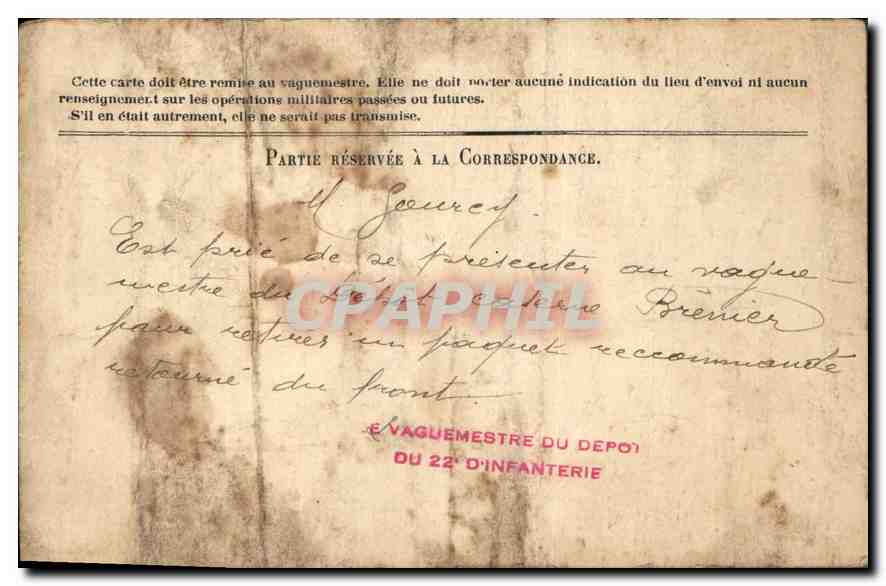 Cette carte doit être remise au vaguemestre. Elle ne doit porter aucune indication du lieu d'envoi ni aucun
renseignement sur les opérations militaires passées ou futures.
S'il en était autrement, elle ne serait pas transmise.
PARTIE RÉSERVÉE À LA CORRESPONDANCE.
M Gourcy.
Est prié de se présenter au vague-
mestre du Dépôt caserne Brénier
pour retirer un paquet reccommandé
retourné du front.
CPAPHIL
LE VAGUEMESTRE DU DEPOT
DU 22e D'INFANTERIE